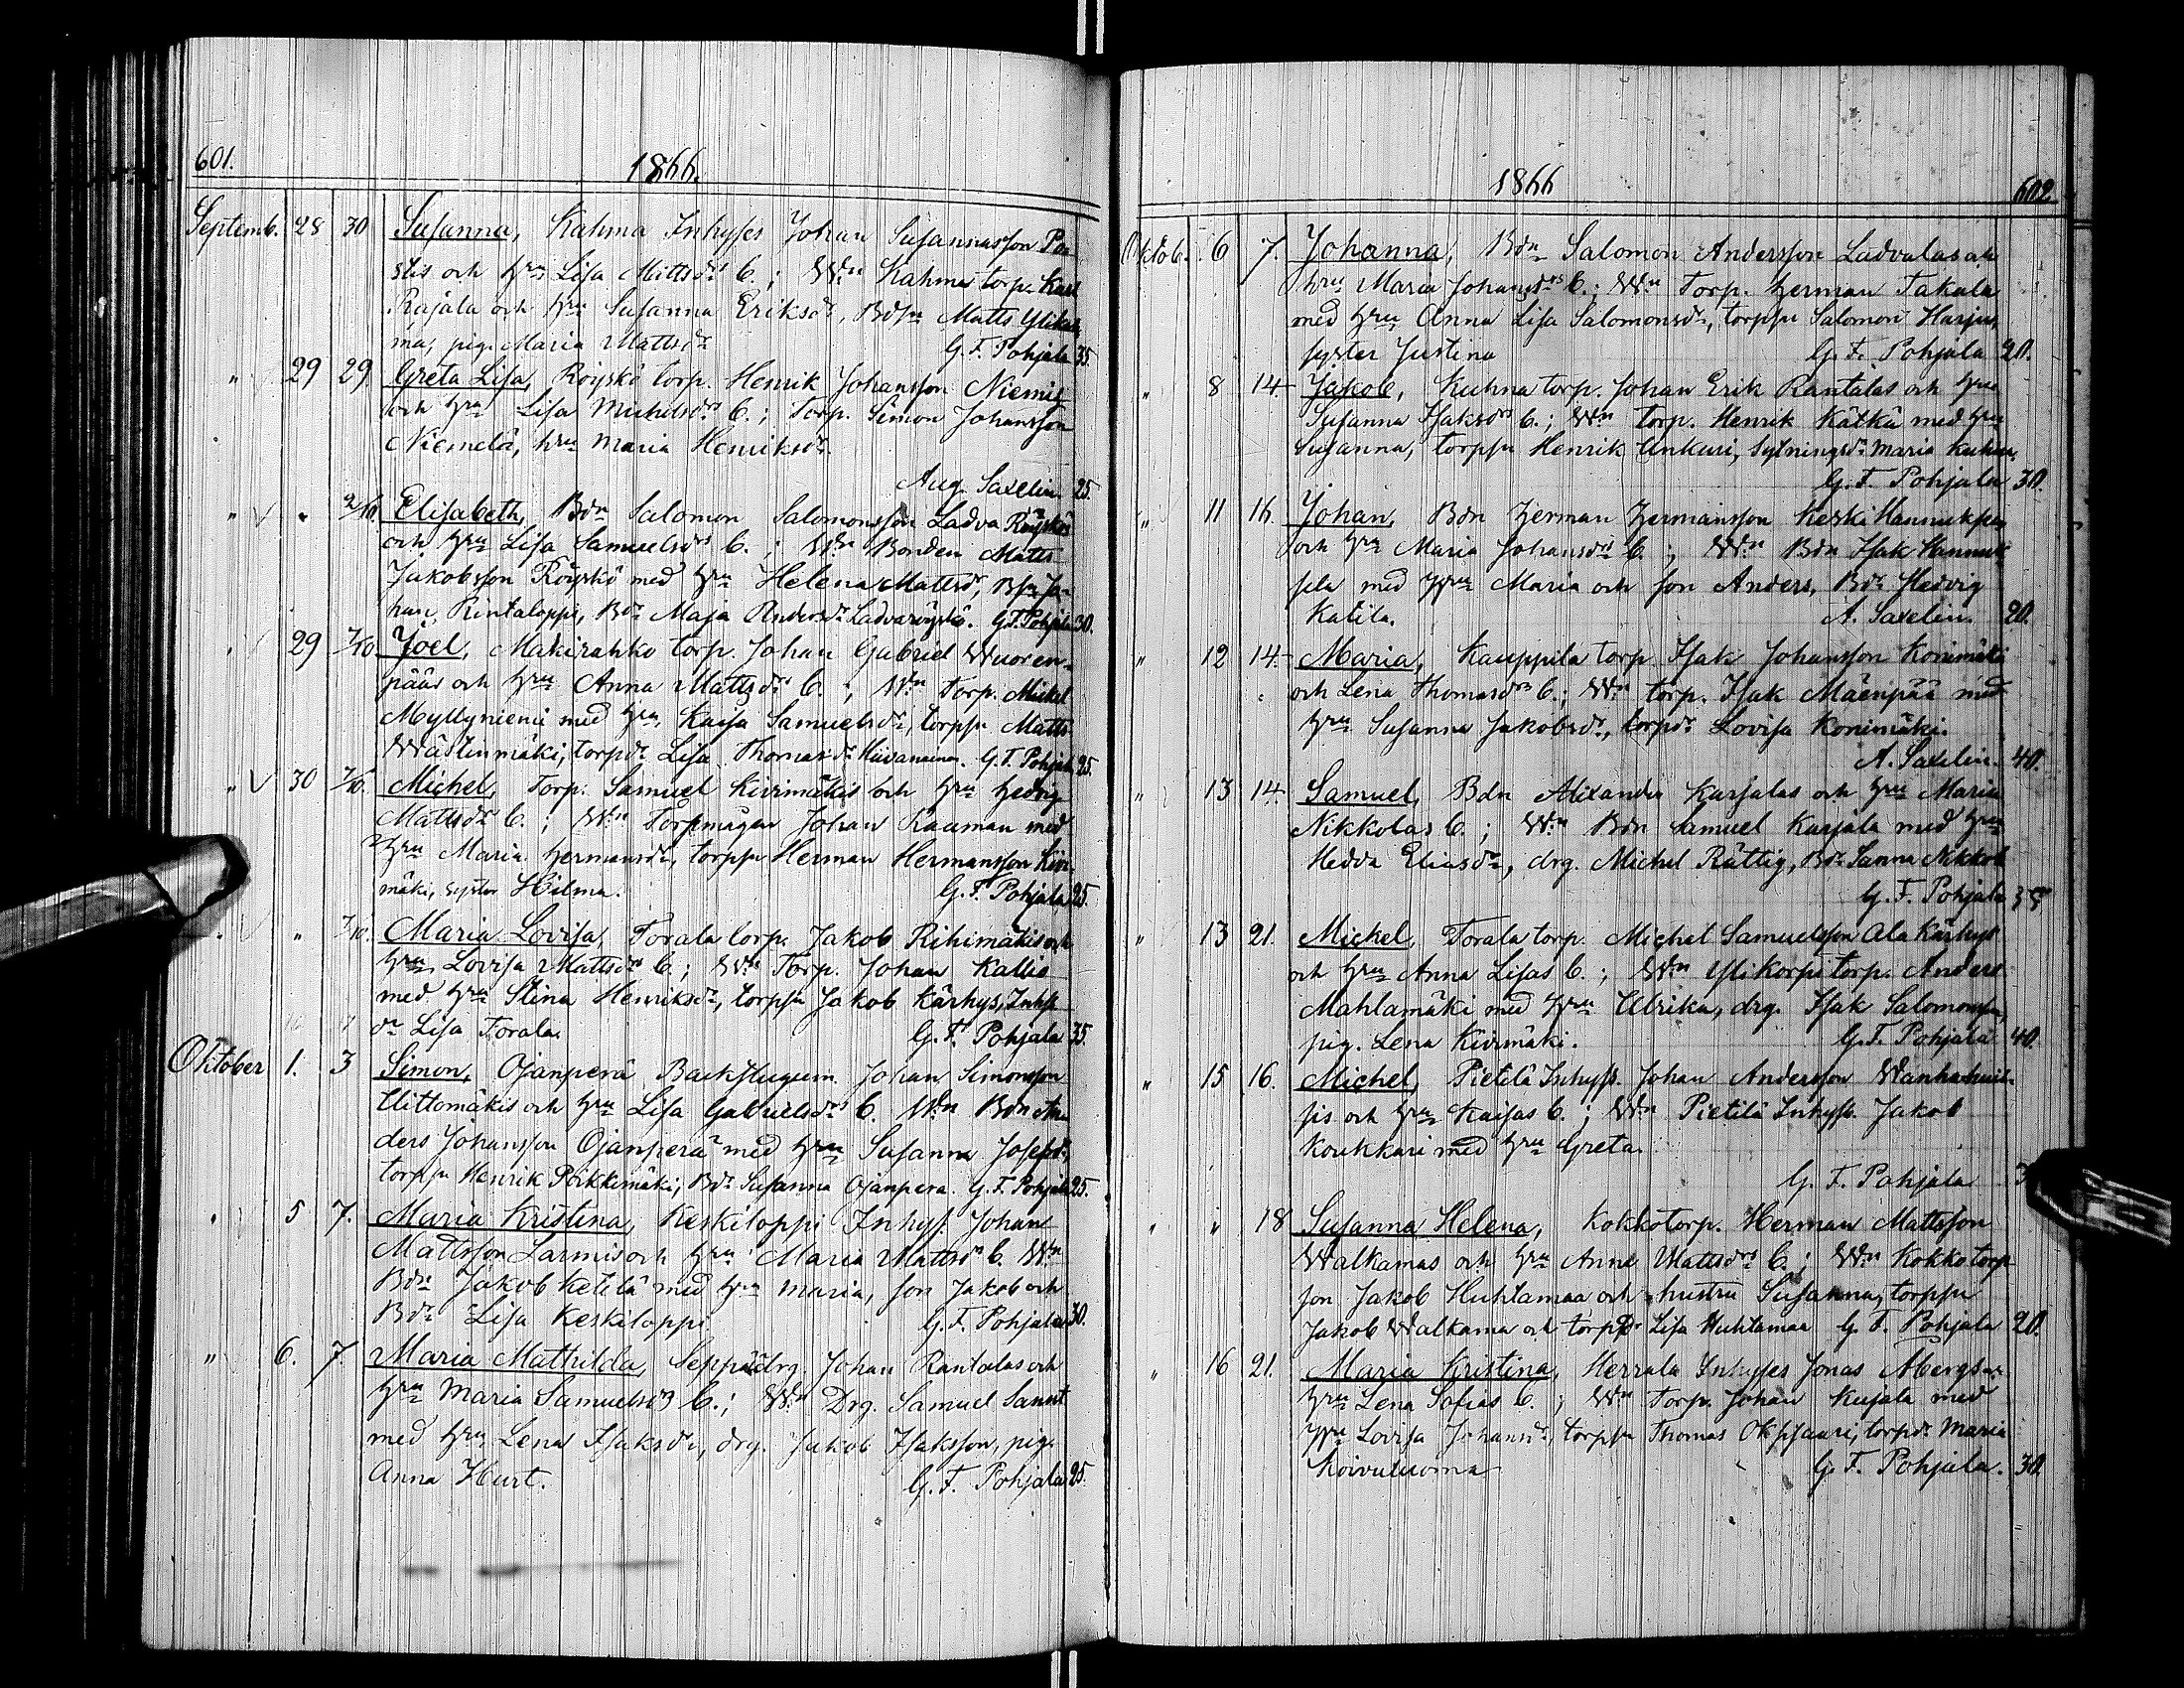 601.
1866.
Septemb. 28 30 Susanna, Kahma Inhyses Johan Susannasson Por
stis och hru Lisa Mattsdrs b.; Wdn Kahma torp. Karl
Rajala och hru Susanna Eriksdr, Bdsn Matts Ylikah
ma, pig. Maria Mattsdr G. F. Pohjala 35.
" 29 29. Greta Lisa, Röyskö torp. Henrik Johansson Niemis
och hru Lisa Michelsdrs b.; Torp. Simon Johansson
Niemelä, hru Maria Henriksdr.
Aug. Saxelin. 25.
" " 2/10. Elisabeth, Bdn Salomon Salomonsson Ladva Röyskös
och hru Lisa Samuelsdrs b.; Wdn Bonden Matts
Jakobsson Röyskö med hru Helena Mattsdr, Bsn Jo-
han, Rintaloppi, Bdr Maja Andersdr Ladvaröyskö. G. F. Pohjala 30.
" 29 7/10 Joel, Mäkirahko torp. Johan Gabriel Wuoren-
pääs och hru Anna Mattsdrs b.; Wdn Torp. Mickel
Myllyniemi med hru Kaisa Samuelsdr, torpsn Matts
Wästinmäki, torpdr Lisa Thomasdr Hiivanainen. G. F. Pohjala 25.
" 30 7/10. Michel, Torp. Samuel Kivimäkis och hru Hedvig
Mattsdrs b.; Wdn Torpmågen Johan Rauman med
hru Maria Hermansdr, torpsn Herman Hermansson Kivi-
mäki, syster Hilma. G. F. Pohjala 25.
" " 7/10. Maria Lovisa, Torala torp. Jakob Rihimäkis och
hru Lovisa Mattsdrs b.; Wdn Torp. Johan Kallio
med hru Stina Henriksdr, torpsn Jakob Kärhys, Inhys
dr Lisa Torala. G. F. Pohjala 35.
Oktober 1. 3 Simon, Ojanperä Backstugum. Johan Simonsson
Uittomäkis och hru Lisa Gabrielsdrs b. Wdn Bdn An
ders Johansson Ojanperä med hru Susanna Josefsdr,
torpsn Henrik Poikkimäki, Bdr Susanna Ojanpera. G. F. Pohjala 25.
" 5 7. Maria Kristina, Keskiloppi Inhys. Johan
Mattsson Larmis och hru Maria Mattsdrs b. Wdn
Bdn Jakob Ketilä med hru Maria, son Jakob och
Bdr Lisa Keskiloppi G. F. Pohjala 30.
" 6. 7. Maria Mathilda, Seppä drg. Johan Rantalas och
hru Maria Samuelsdrs b.; Wdn Drg. Samuel Sannt
med hru Lena Isaksdr, drg. Jakob Isaksson, pig.
Anna Hurt. G. F. Pohjala 25.
1866
602.
Oktob. 6 7. Johanna, Bdn Salomon Andersson Ladvalas och
hru Maria Johansdrs b.; Wdn Torp. Herman Takala
med hru Anna Lisa Salomonsdr, torpsn Salomon Harju,
syster Justina G. F. Pohjala 20.
" 8 14 Jakob, Kuhna torp. Johan Erik Rantalas och hru
Susanna Isaksdrs b.; Wdn Torp. Henrik Kätkä med hru
Susanna, torpsn Henrik Unkuri, Sytningsdr Maria Kuhna.
G. F. Pohjala 30.
" 11 16. Johan, Bdn Herman Hermansson Keski Hannuksel
och hru Maria Johansdrs b.; Wdn Bdn Isak Hannuk
sela med hru Maria och son Anders, Bdr Hedvig
Katila. A. Saxelin. 20.
" 12 14. Maria, Kauppila torp. Isak Johansson Konimäki
och Lena Thomasdrs b.; Wdn torp. Isak Mäenpää med
hru Susanna Jakobsdr, torpdr Lovisa Konimäki.
A. Saxelin. 40.
" 13 14. Samuel, Bdn Alexander Karjalas och hru Maria
Nikkolas b.; Wdn Bdn Samuel Karjala med hru
Hedda Eliasdr, drg. Michel Rättig, Bdr Sanna Nikkol
G. F. Pohjala 35
" 13 21. Mickel, Torala torp. Michel Samuelsson Ala Kärhys
och hru Anna Lisas b.; Wdn Ylikorpi torp. Anders
Mahlamäki med hru Ulrika, drg. Isak Salomonsn,
pig. Lena Kivimäki. G. F. Pohjala 40.
" 15 16. Michel, Pietilä Inhyss. Johan Andersson
sis och hru Kaisas b.; Wdn Pietilä Inhyss. Jakob
Koukkari med hru Greta.
G. F. Pohjala 3
" " 18 Susanna Helena, Kokko torp. Herman Mattsson
Walkamas och hru Anna Mattsdrs b.; Wdn Kokko torp
son Jakob Huhtamaa och hustru Susanna, torpsn
Jakob Walkama och torpdr Lisa Huhtamaa G. F. Pohjala 20.
" 16 21. Maria Kristina, Herrala Inhyses Jonas Åbergs och
hru Lena Sofias b.; Wdn Torp. Johan Kujala med
hru Lovisa Johansdr, torpsn Thomas Okssaari, torpdr Maria
Koivuluoma G. F. Pohjala. 30.